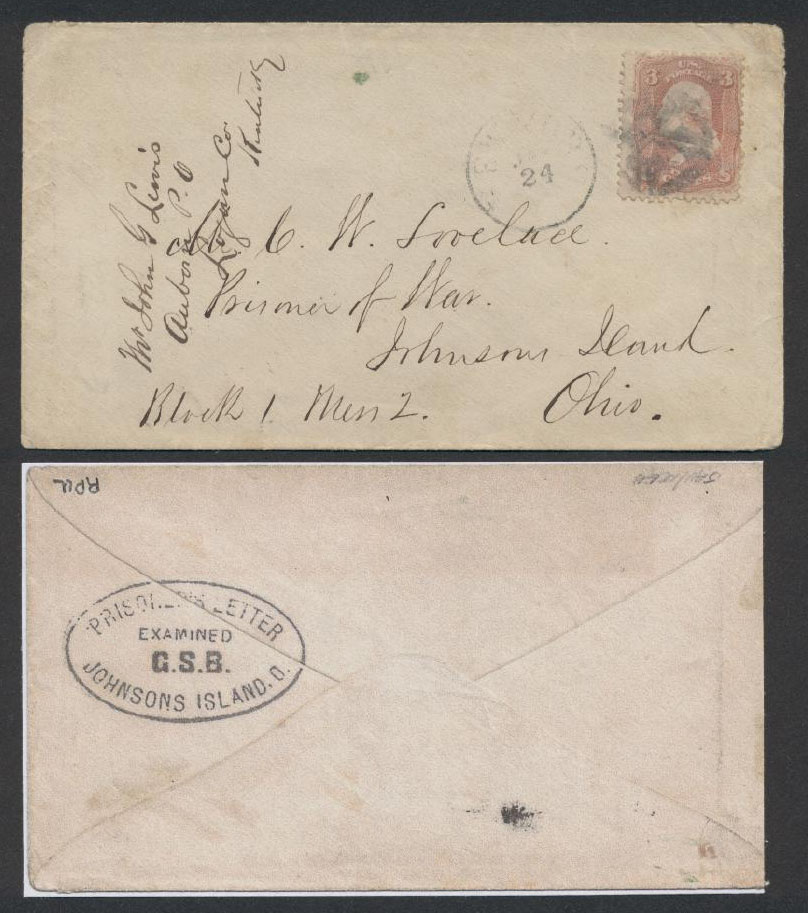 Mr John G Lewis
Auborn P. O
Logan Co
Kentucky
24
3 U.S. 3
POSTAGE
Mr. C. W. Lovelace.
Prisoner of War.
Johnsons Island.
Block 1 Mess 2.
Ohio.
RPU
PRISONER'S LETTER
EXAMINED
G.S.B.
JOHNSONS ISLAND. O.